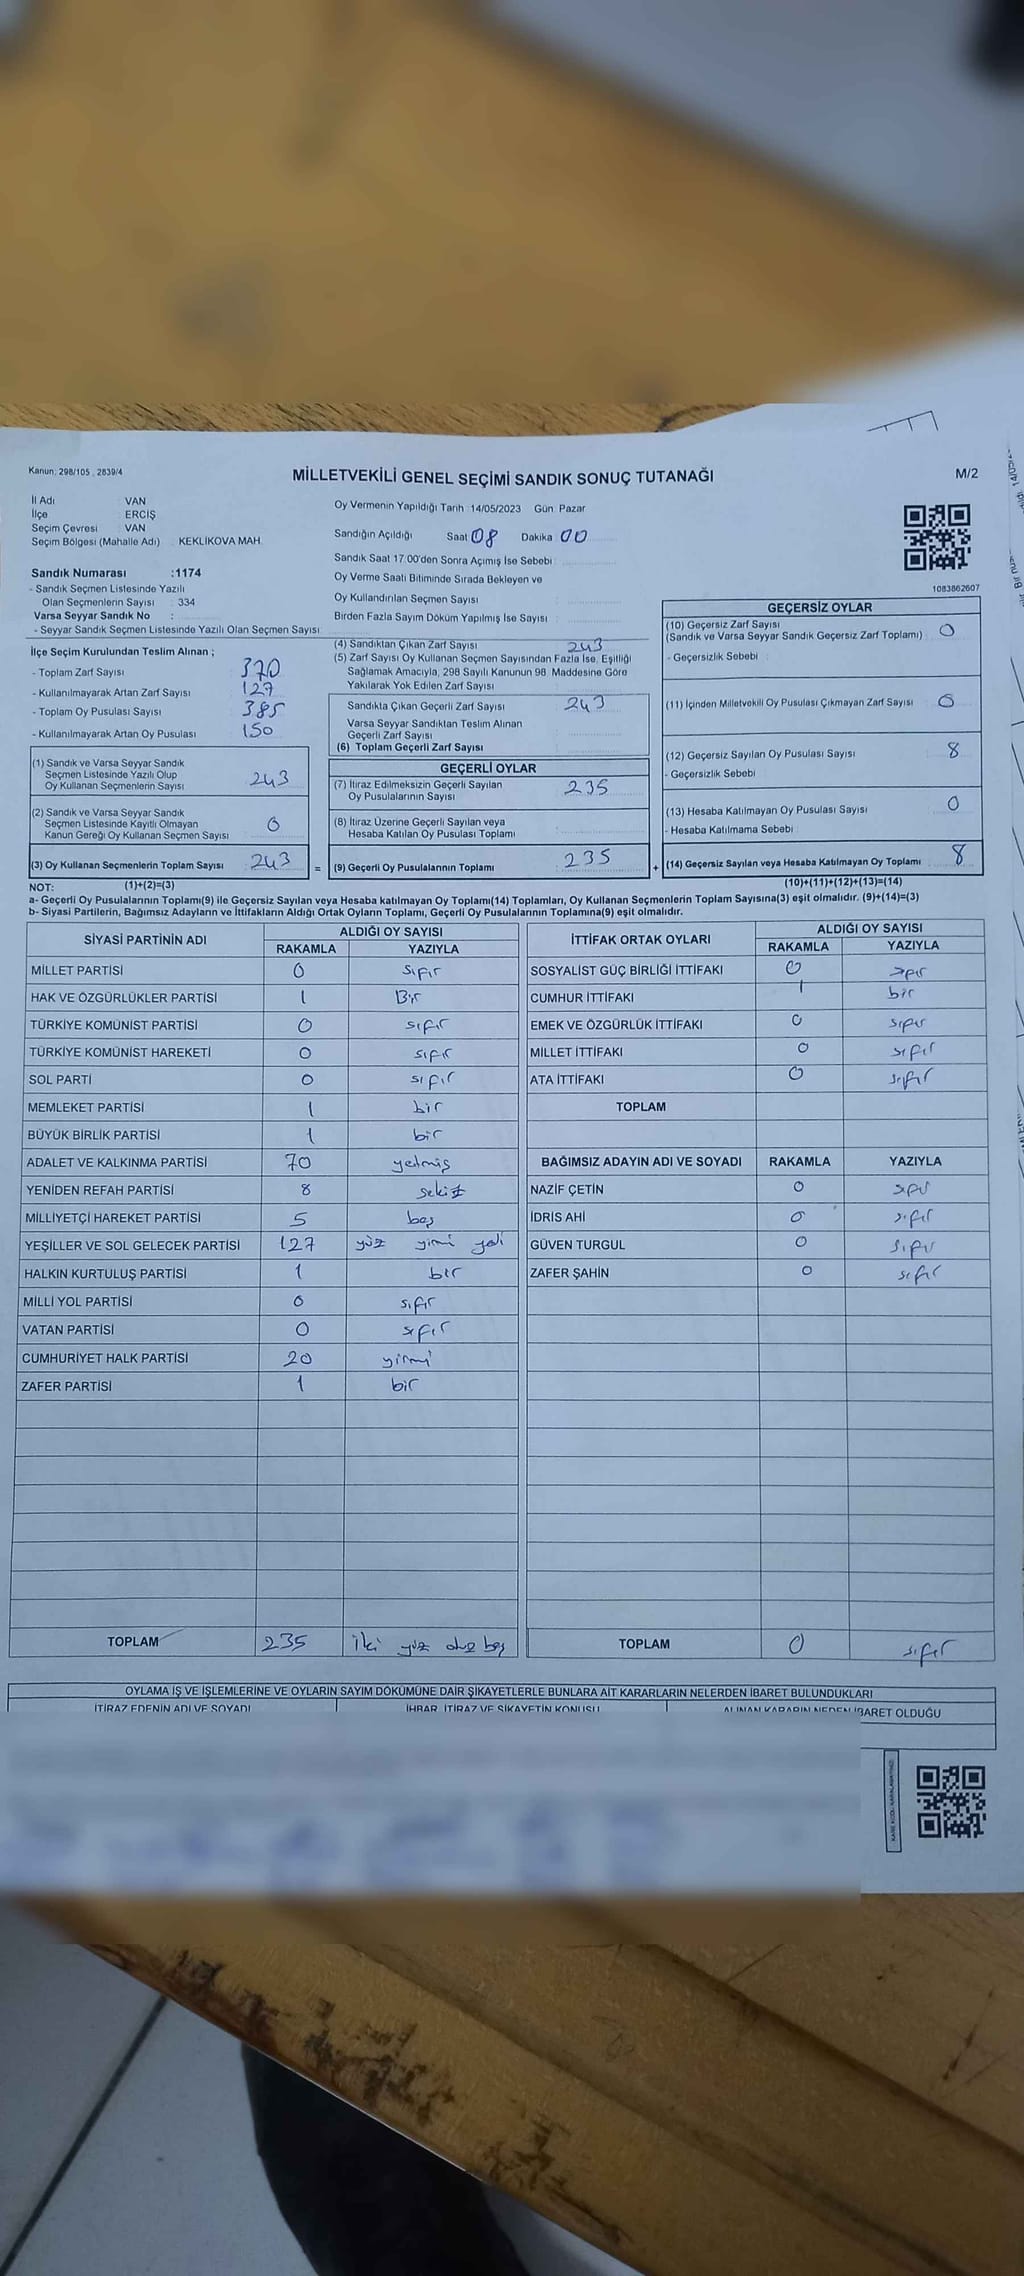 Kanun: 298/105 , 2839/4
MİLLETVEKİLİ GENEL SEÇİMİ SANDIK SONUÇ TUTANAĞI
M/2
İl Adı : VAN
İlçe : ERCİŞ
Seçim Çevresi : VAN
Seçim Bölgesi (Mahalle Adı) : KEKLİKOVA MAH.
Sandık Numarası :1174
- Sandık Seçmen Listesinde Yazılı
Olan Seçmenlerin Sayısı : 334
Varsa Seyyar Sandık No :
- Seyyar Sandık Seçmen Listesinde Yazılı Olan Seçmen Sayısı :
Oy Vermenin Yapıldığı Tarih :14/05/2023 Gün: Pazar
Sandığın Açıldığı Saat 08 Dakika 00
Sandık Saat 17:00'den Sonra Açımış İse Sebebi :
Oy Verme Saati Bitiminde Sırada Bekleyen ve
Oy Kullandırılan Seçmen Sayısı :
Birden Fazla Sayım Döküm Yapılmış İse Sayısı :
1083862607
İlçe Seçim Kurulundan Teslim Alınan ;
- Toplam Zarf Sayısı : 370
- Kullanılmayarak Artan Zarf Sayısı : 127
- Toplam Oy Pusulası Sayısı : 385
- Kullanılmayarak Artan Oy Pusulası : 150
(1) Sandık ve Varsa Seyyar Sandık
Seçmen Listesinde Yazılı Olup
Oy Kullanan Seçmenlerin Sayısı : 243
(2) Sandık ve Varsa Seyyar Sandık
Seçmen Listesinde Kayıtlı Olmayan
Kanun Gereği Oy Kullanan Seçmen Sayısı : 0
(3) Oy Kullanan Seçmenlerin Toplam Sayısı : 243
(4) Sandıktan Çıkan Zarf Sayısı : 243
(5) Zarf Sayısı Oy Kullanan Seçmen Sayısından Fazla İse, Eşitliği
Sağlamak Amacıyla, 298 Sayılı Kanunun 98. Maddesine Göre
Yakılarak Yok Edilen Zarf Sayısı :
Sandıkta Çıkan Geçerli Zarf Sayısı : 243
Varsa Seyyar Sandıktan Teslim Alınan
Geçerli Zarf Sayısı :
(6) Toplam Geçerli Zarf Sayısı :
GEÇERLİ OYLAR
(7) İtiraz Edilmeksizin Geçerli Sayılan
Oy Pusulalarının Sayısı : 235
(8) İtiraz Üzerine Geçerli Sayılan veya
Hesaba Katılan Oy Pusulası Toplamı :
= (9) Geçerli Oy Pusulalarının Toplamı : 235 +
GEÇERSİZ OYLAR
(10) Geçersiz Zarf Sayısı
(Sandık ve Varsa Seyyar Sandık Geçersiz Zarf Toplamı) : 0
- Geçersizlik Sebebi :
(11) İçinden Milletvekili Oy Pusulası Çıkmayan Zarf Sayısı : 0
(12) Geçersiz Sayılan Oy Pusulası Sayısı : 8
- Geçersizlik Sebebi :
(13) Hesaba Katılmayan Oy Pusulası Sayısı : 0
- Hesaba Katılmama Sebebi :
(14) Geçersiz Sayılan veya Hesaba Katılmayan Oy Toplamı : 8
NOT: (1)+(2)=(3)
(10)+(11)+(12)+(13)=(14)
a- Geçerli Oy Pusulalarının Toplamı(9) ile Geçersiz Sayılan veya Hesaba katılmayan Oy Toplamı(14) Toplamları, Oy Kullanan Seçmenlerin Toplam Sayısına(3) eşit olmalıdır. (9)+(14)=(3)
b- Siyasi Partilerin, Bağımsız Adayların ve İttifakların Aldığı Ortak Oyların Toplamı, Geçerli Oy Pusulalarının Toplamına(9) eşit olmalıdır.
SİYASİ PARTİNİN ADI
ALDIĞI OY SAYISI
RAKAMLA YAZIYLA
MİLLET PARTİSİ 0 sıfır
HAK VE ÖZGÜRLÜKLER PARTİSİ 1 Bir
TÜRKİYE KOMÜNİST PARTİSİ 0 sıfır
TÜRKİYE KOMÜNİST HAREKETİ 0 sıfır
SOL PARTİ 0 sıfır
MEMLEKET PARTİSİ 1 bir
BÜYÜK BİRLİK PARTİSİ 1 bir
ADALET VE KALKINMA PARTİSİ 70 yetmiş
YENİDEN REFAH PARTİSİ 8 sekiz
MİLLİYETÇİ HAREKET PARTİSİ 5 beş
YEŞİLLER VE SOL GELECEK PARTİSİ 127 yüz yirmi yedi
HALKIN KURTULUŞ PARTİSİ 1 bir
MİLLİ YOL PARTİSİ 0 sıfır
VATAN PARTİSİ 0 sıfır
CUMHURİYET HALK PARTİSİ 20 yirmi
ZAFER PARTİSİ 1 bir
TOPLAM 235 iki yüz otuz beş
İTTİFAK ORTAK OYLARI
ALDIĞI OY SAYISI
RAKAMLA YAZIYLA
SOSYALİST GÜÇ BİRLİĞİ İTTİFAKI 0 sıfır
CUMHUR İTTİFAKI 1 bir
EMEK VE ÖZGÜRLÜK İTTİFAKI 0 sıfır
MİLLET İTTİFAKI 0 sıfır
ATA İTTİFAKI 0 sıfır
TOPLAM
BAĞIMSIZ ADAYIN ADI VE SOYADI RAKAMLA YAZIYLA
NAZİF ÇETİN 0 sıfır
İDRİS AHİ 0 sıfır
GÜVEN TURGUL 0 sıfır
ZAFER ŞAHİN 0 sıfır
TOPLAM 0 sıfır
OYLAMA İŞ VE İŞLEMLERİNE VE OYLARIN SAYIM DÖKÜMÜNE DAİR ŞİKAYETLERLE BUNLARA AİT KARARLARIN NELERDEN İBARET BULUNDUKLARI
İTİRAZ EDENİN ADI VE SOYADI
İHBAR, İTİRAZ VE ŞİKAYETİN KONUSU
ALINAN KARARIN NEDEN İBARET OLDUĞU